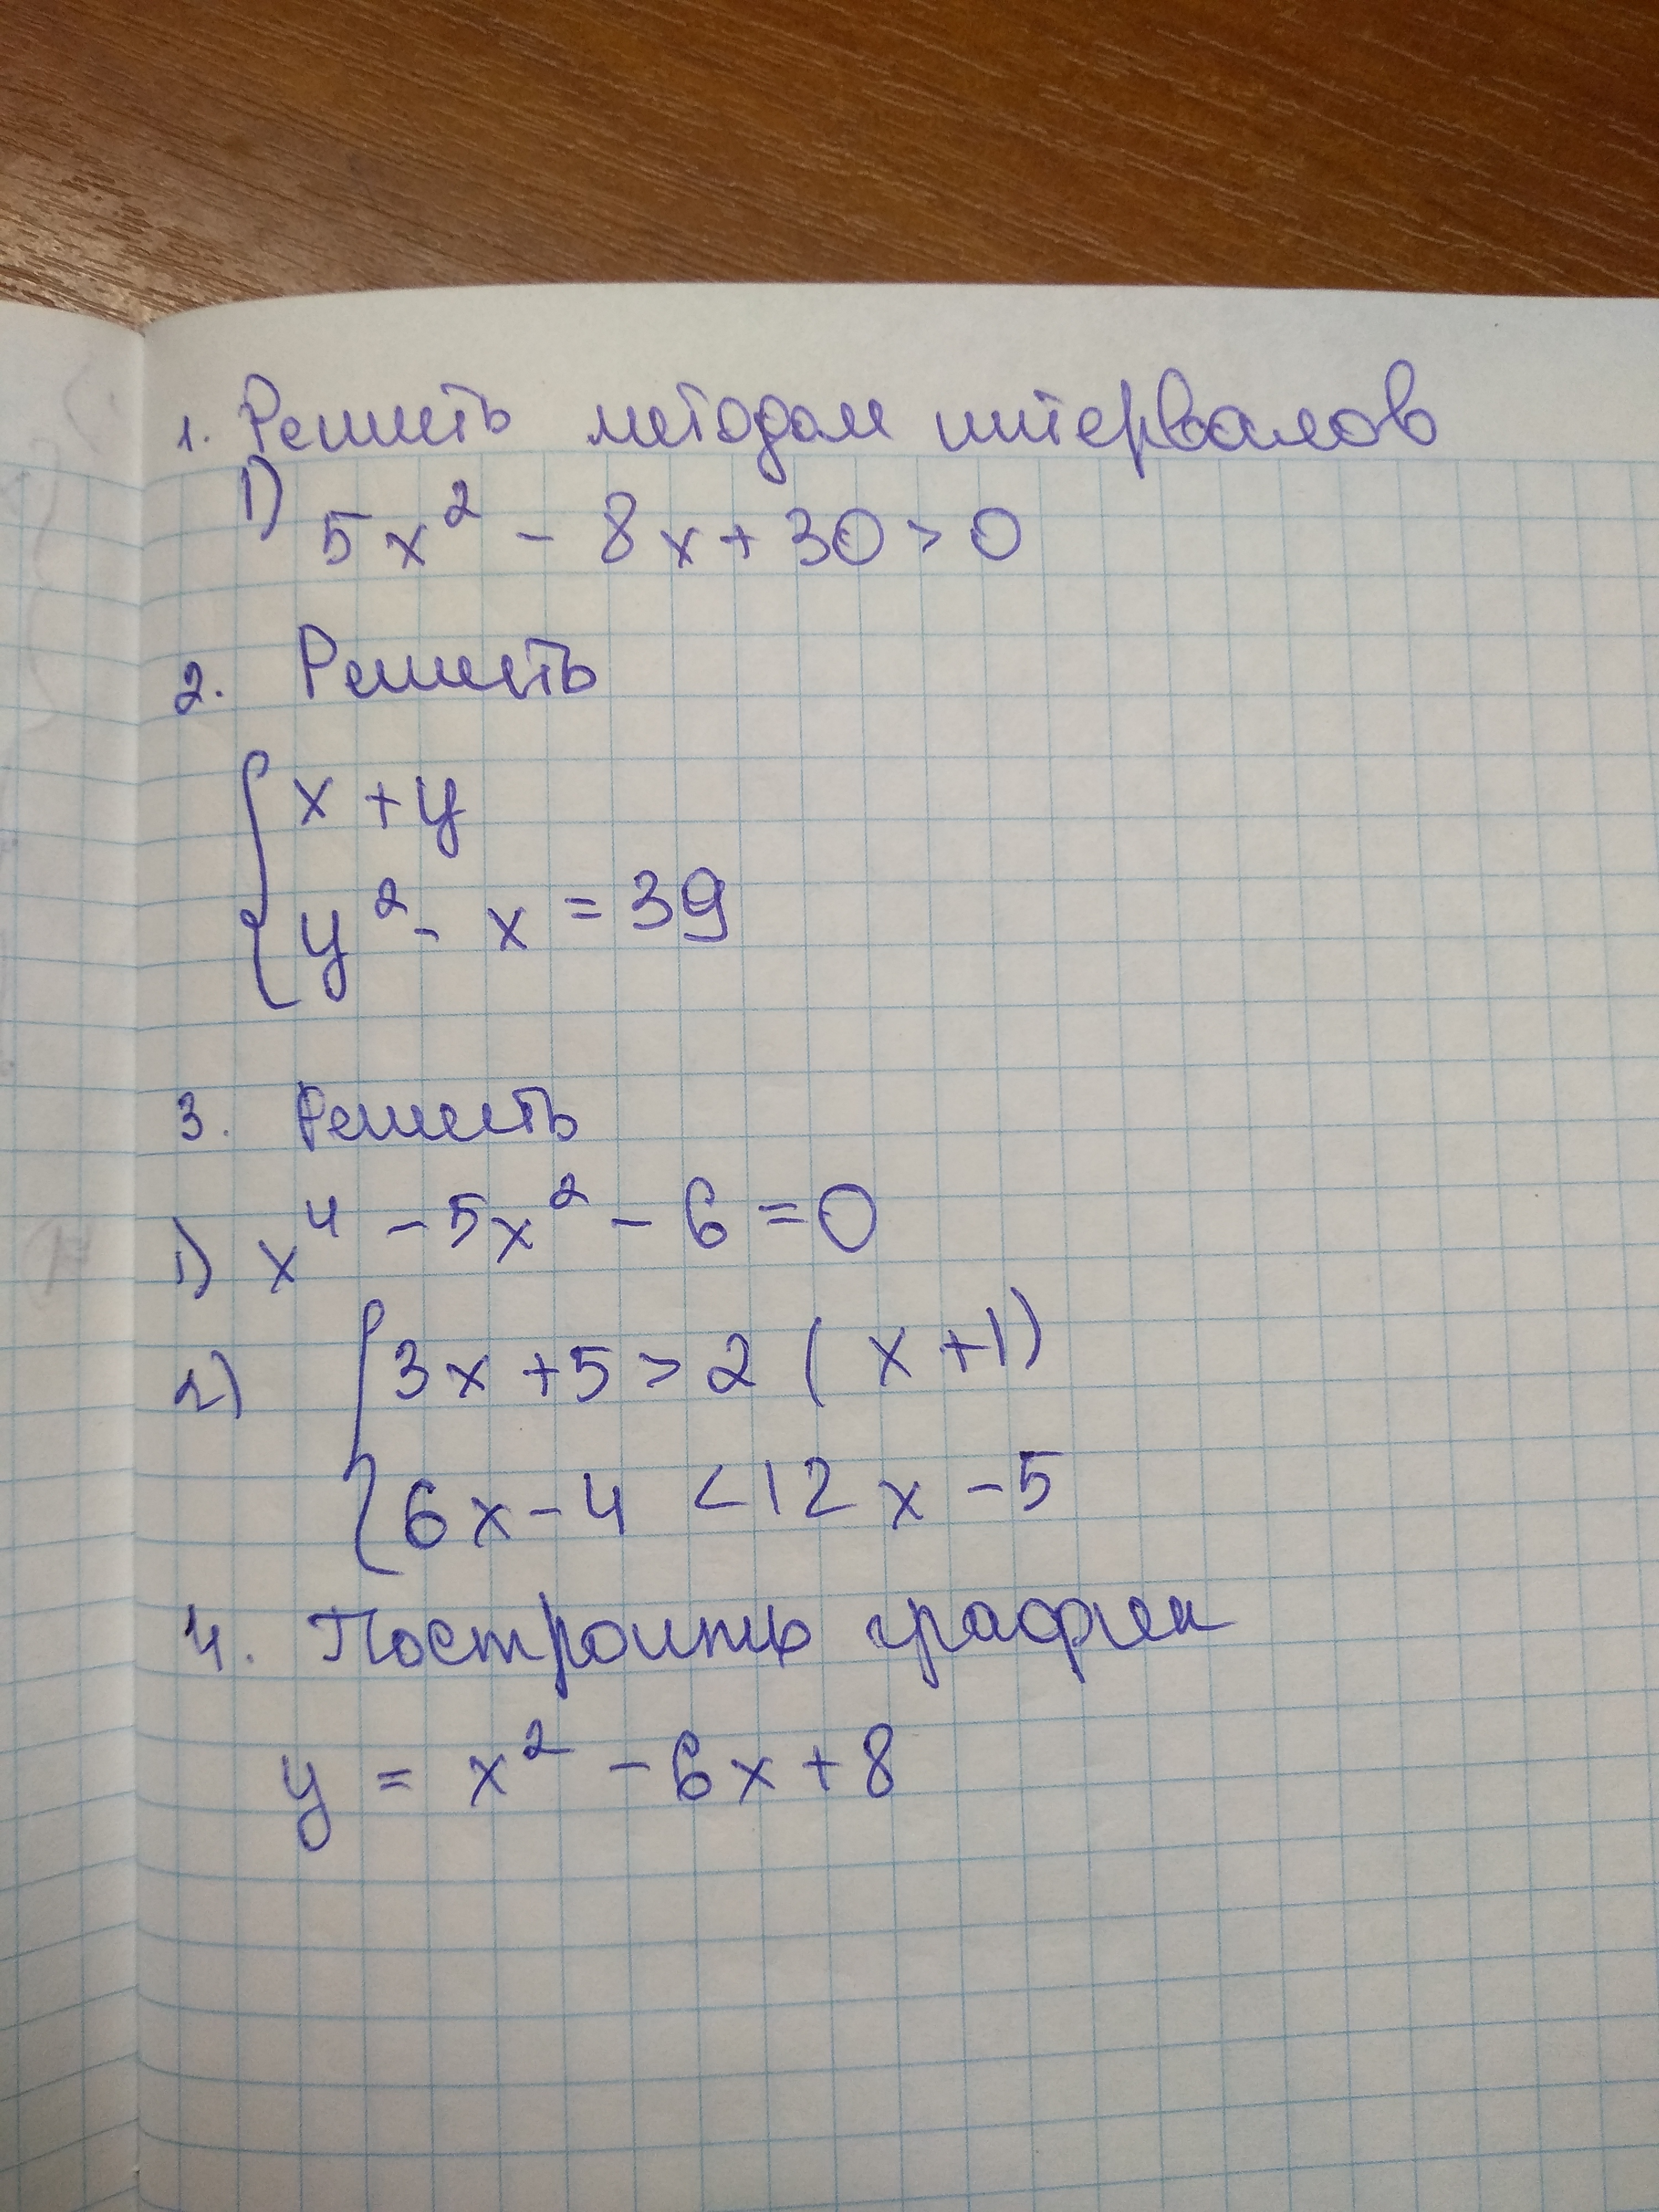 1. Решить методом интервалов
1) 5x² - 8x + 30 > 0
2. Решить
{ x + y
{ y² - x = 39
3. Решить
1) x⁴ - 5x² - 6 = 0
2) { 3x + 5 > 2 ( x + 1)
{ 6x - 4 < 12x - 5
4. Построить график
y = x² - 6x + 8